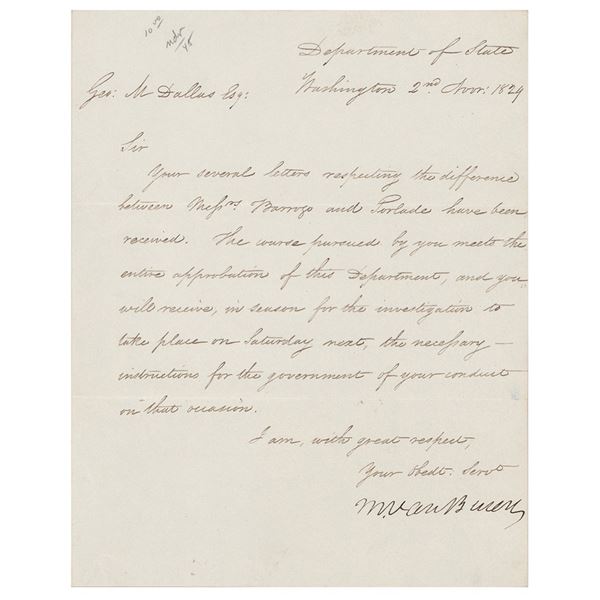 10 00
nov/45
Department of State
Geo: M Dallas Esq: Washington 2nd Novr: 1829
Sir
Your several letters respecting the difference
between Messrs. Barrozo and Torlade have been
received. The course pursued by you meets the
entire approbation of this Department, and you
will receive, in season for the investigation to
take place on Saturday next, the necessary –
instructions for the government of your conduct
on that occasion.
I am, with great respect,
Your obedt. Servt
M. Van Buren